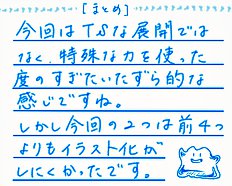 [まとめ]
今回はTSな展開では
なく、特殊な力を使った
度のすぎたいたずら的な
感じですね。
しかし今回の2つは前4つ
よりもイラスト化が
しにくかったです。